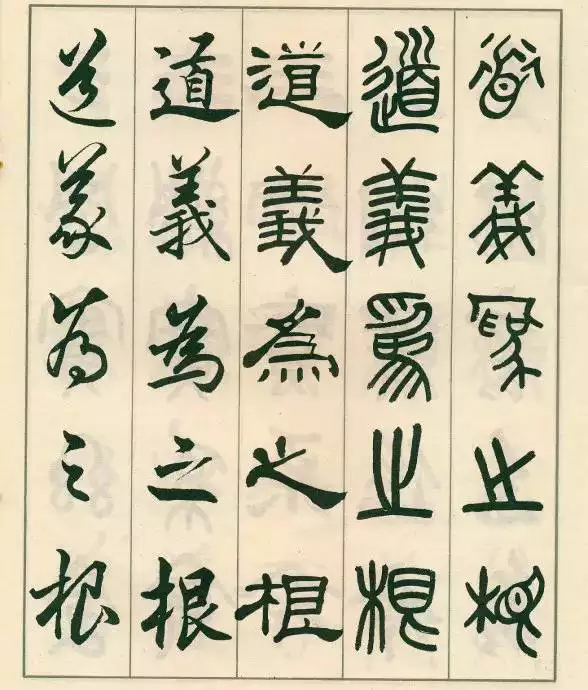 道義為之根
道義為之根
道義為之根
道義為之根
道義為之根